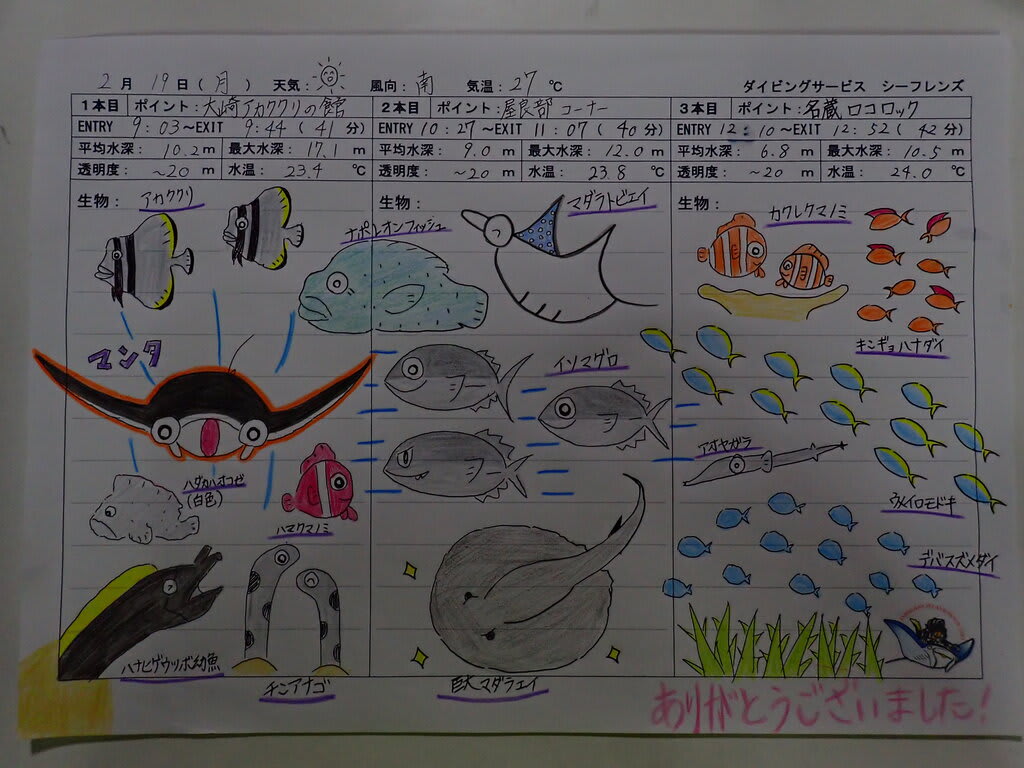 2月 19日(月) 天気: 風向:南 気温:27℃ ダイビングサービス シーフレンズ
1本目 ポイント:大崎アカククリの館
ENTRY 9:03〜EXIT 9:44(41分)
平均水深: 10.2m 最大水深: 17.1m
透明度: 〜20m 水温: 23.4℃
生物:
アカククリ
マンタ
ハダカハオコゼ
(白色)
ハマクマノミ
ハナヒゲウツボ幼魚
チンアナゴ
2本目 ポイント:屋良部コーナー
ENTRY 10:27〜EXIT 11:07(40分)
平均水深: 9.0m 最大水深: 12.0m
透明度: 〜20m 水温: 23.8℃
生物:
マダラトビエイ
ナポレオンフィッシュ
イソマグロ
巨大マダラエイ
3本目 ポイント:名蔵ロコロック
ENTRY 12:10〜EXIT 12:52(42分)
平均水深: 6.8m 最大水深: 10.5m
透明度: 〜20m 水温: 24.0℃
生物:
カクレクマノミ
キンギョハナダイ
アオヤガラ
ウメイロモドキ
デバスズメダイ
ありがとうございました!